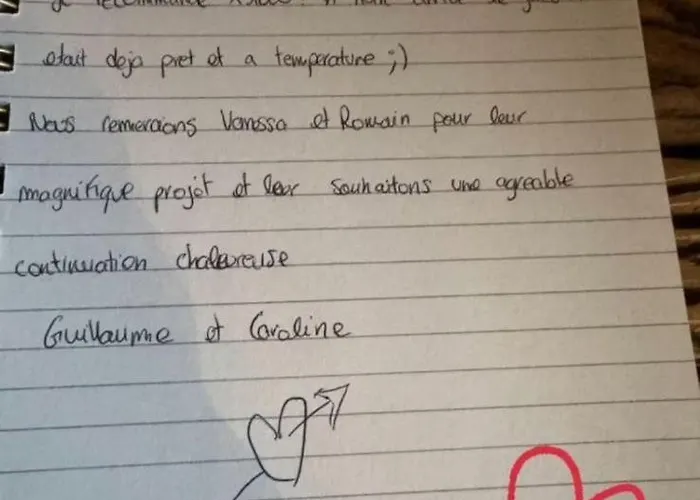 je recommande
était deja pret et a temperature ;)
Nous remercions Vanessa et Romain pour leur
magnifique projet et leur souhaitons une agreable
continuation chaleureuse
Guillaume et Caroline